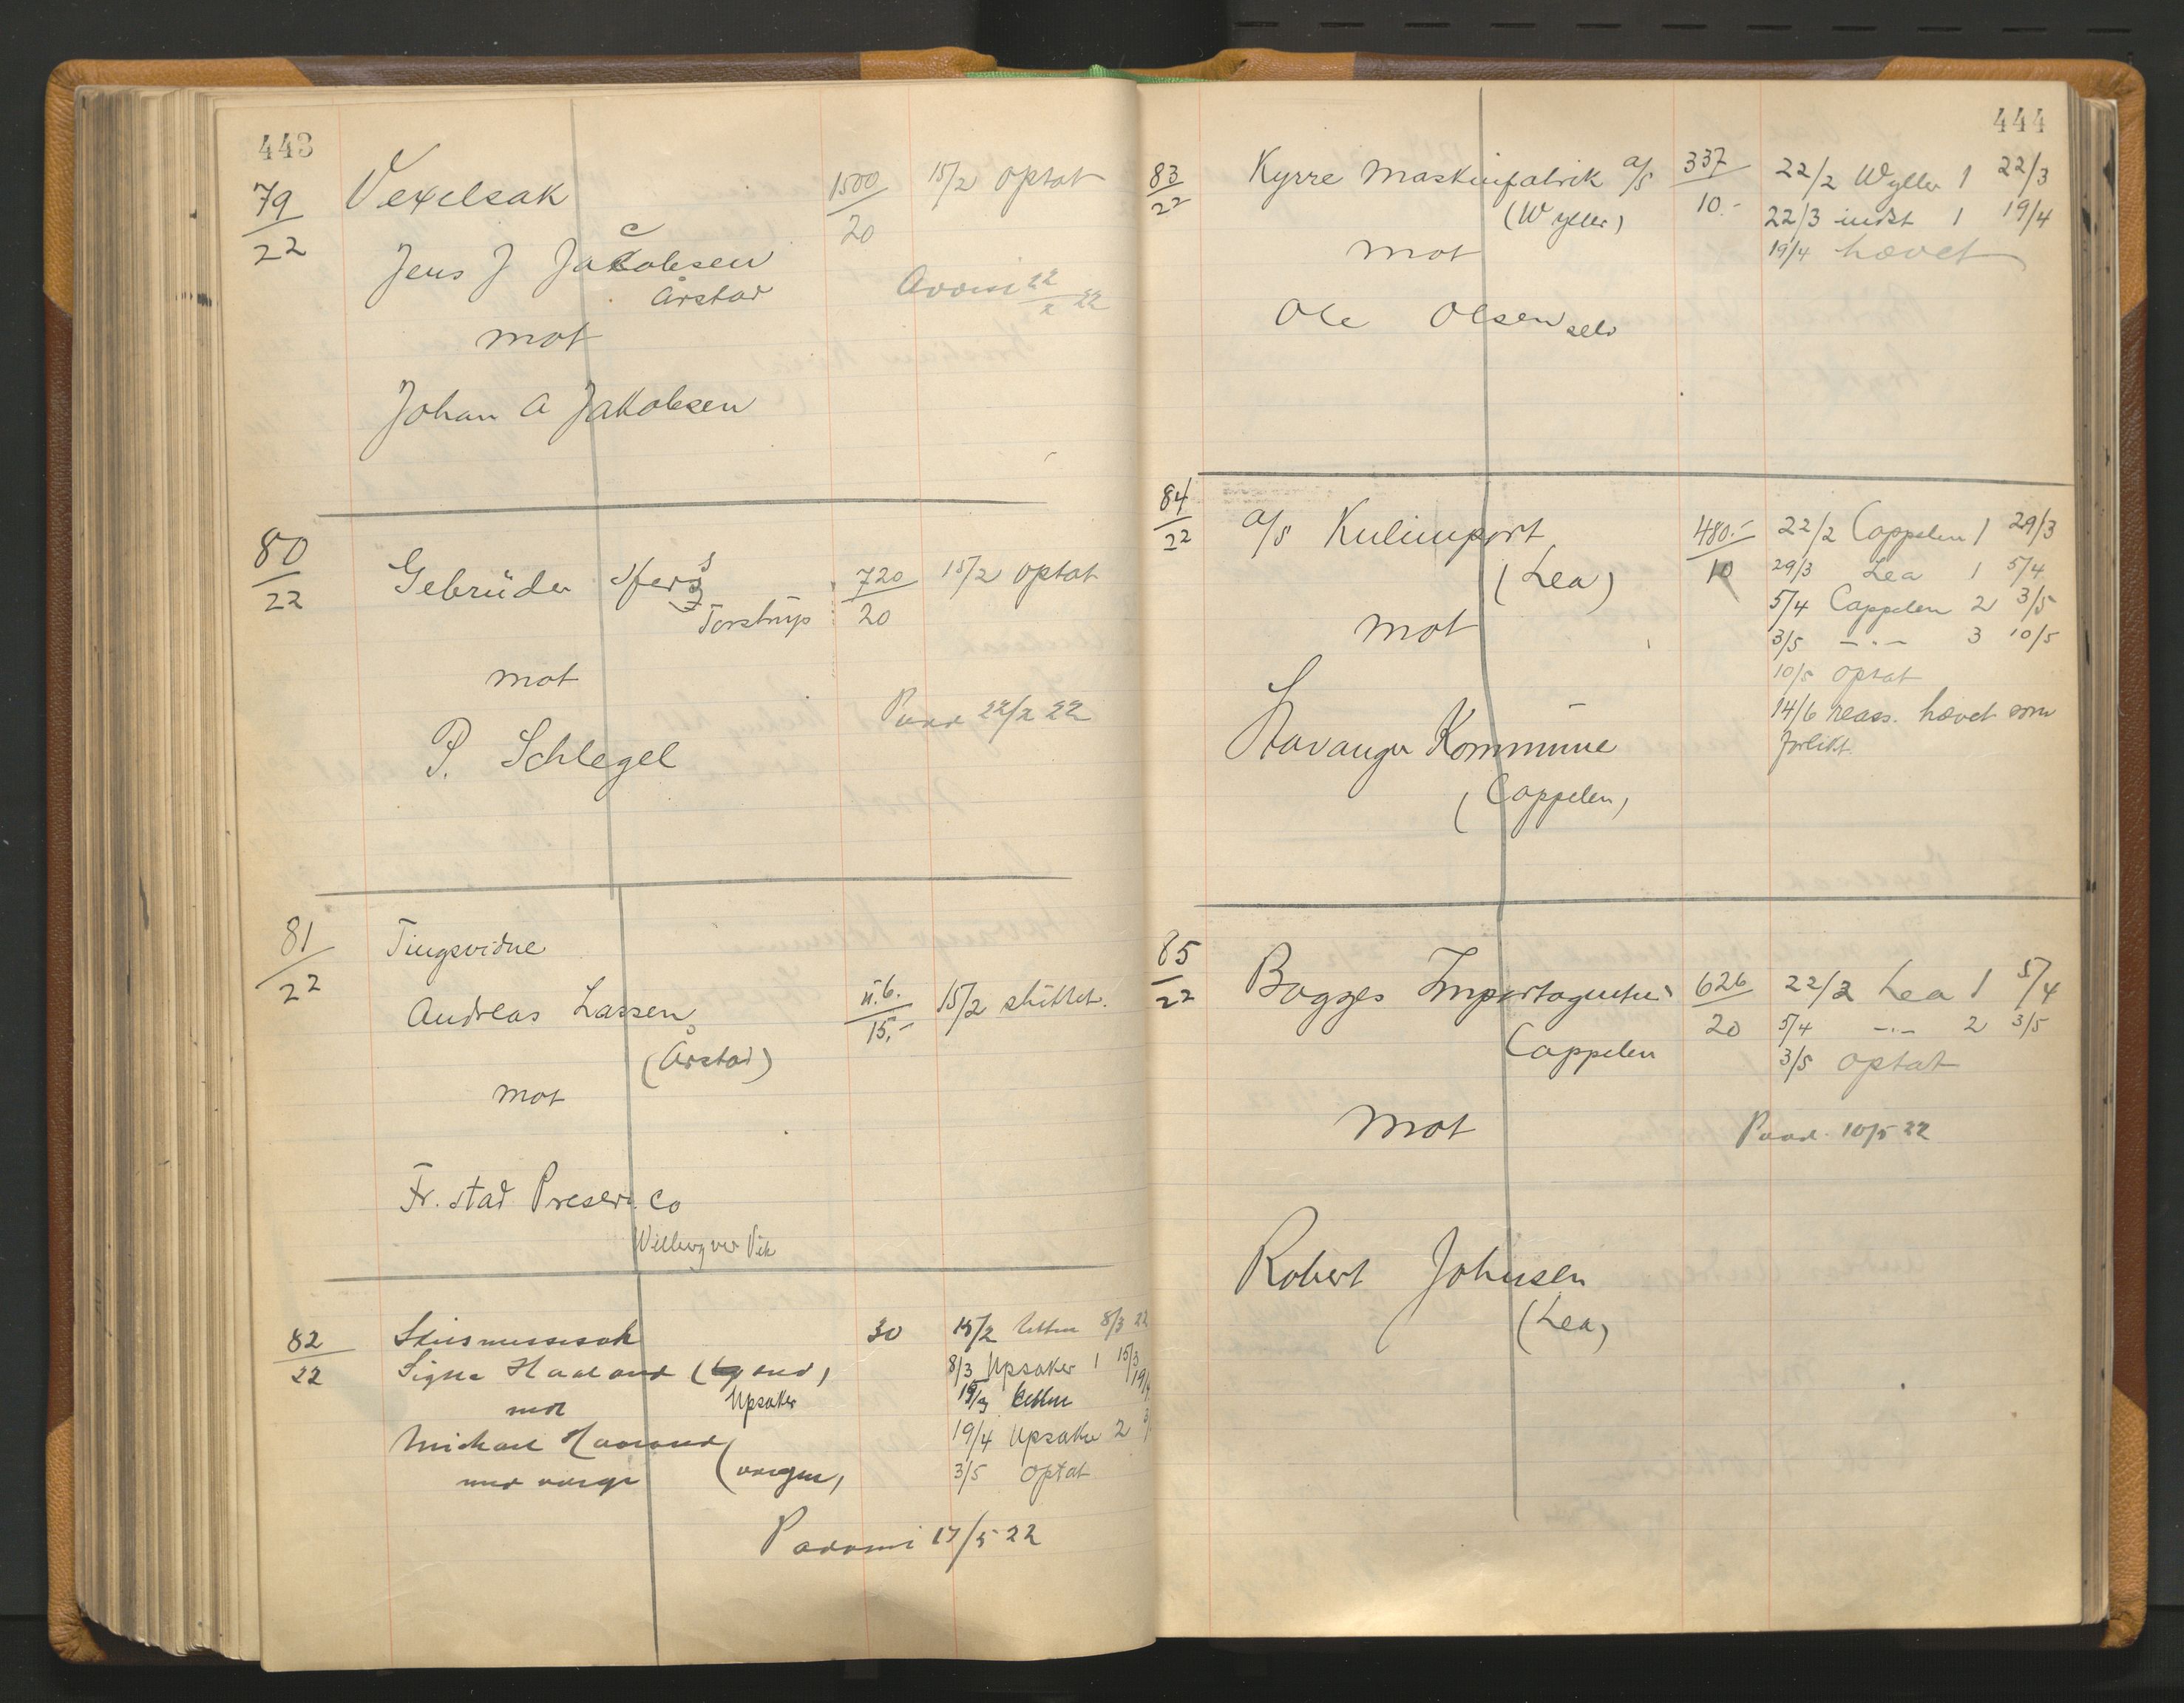 443
79/22 Vexelsak 1500/20 15/2 optat
Jens J Jacobsen
Årstad
mot
Johan A Jakobsen
80/22 Gebrüder 720/20 15/2 optat
Torstrup
mot
22/2 22
P. Schlegel
81/22 Tingsvidne
Andreas Lassen u.b./15,- 15/2 sluttet.
(Årstad)
mot
Fr. stad Preserv. Co
82/22 30 15/2 retten 8/3 22
Signe Haaland 8/3 Upsaker 1 15/3
mot Upsaker 15/3 retten 19/4
Michael Haaland 19/4 Upsaker 2 3/
med værge 3/5 optat
17/5 22
444
83/22 Kyrre Maskinfabrik a/s 337/10.- 22/2 Wyller 1 22/3
(Wyller) 22/3 indst 1 19/4
mot 19/4 hævet
Ole Olsen selv
84/22 a/s Kulimport 480.-/10 22/2 Cappelen 1 29/3
(Lea) 29/3 Lea 1 5/4
mot 5/4 Cappelen 2 3/5
3/5 -"- 3 10/5
10/5 optat
Stavanger Kommune 14/6 reass. hævet som
forlikt.
(Cappelen)
85/22 Bogges Importagentur 626/20 22/2 Lea 1 5/4
Cappelen 5/4 -"- 2 3/5
3/5 optat
mot 10/5 22
Robert Johnsen
(Lea)